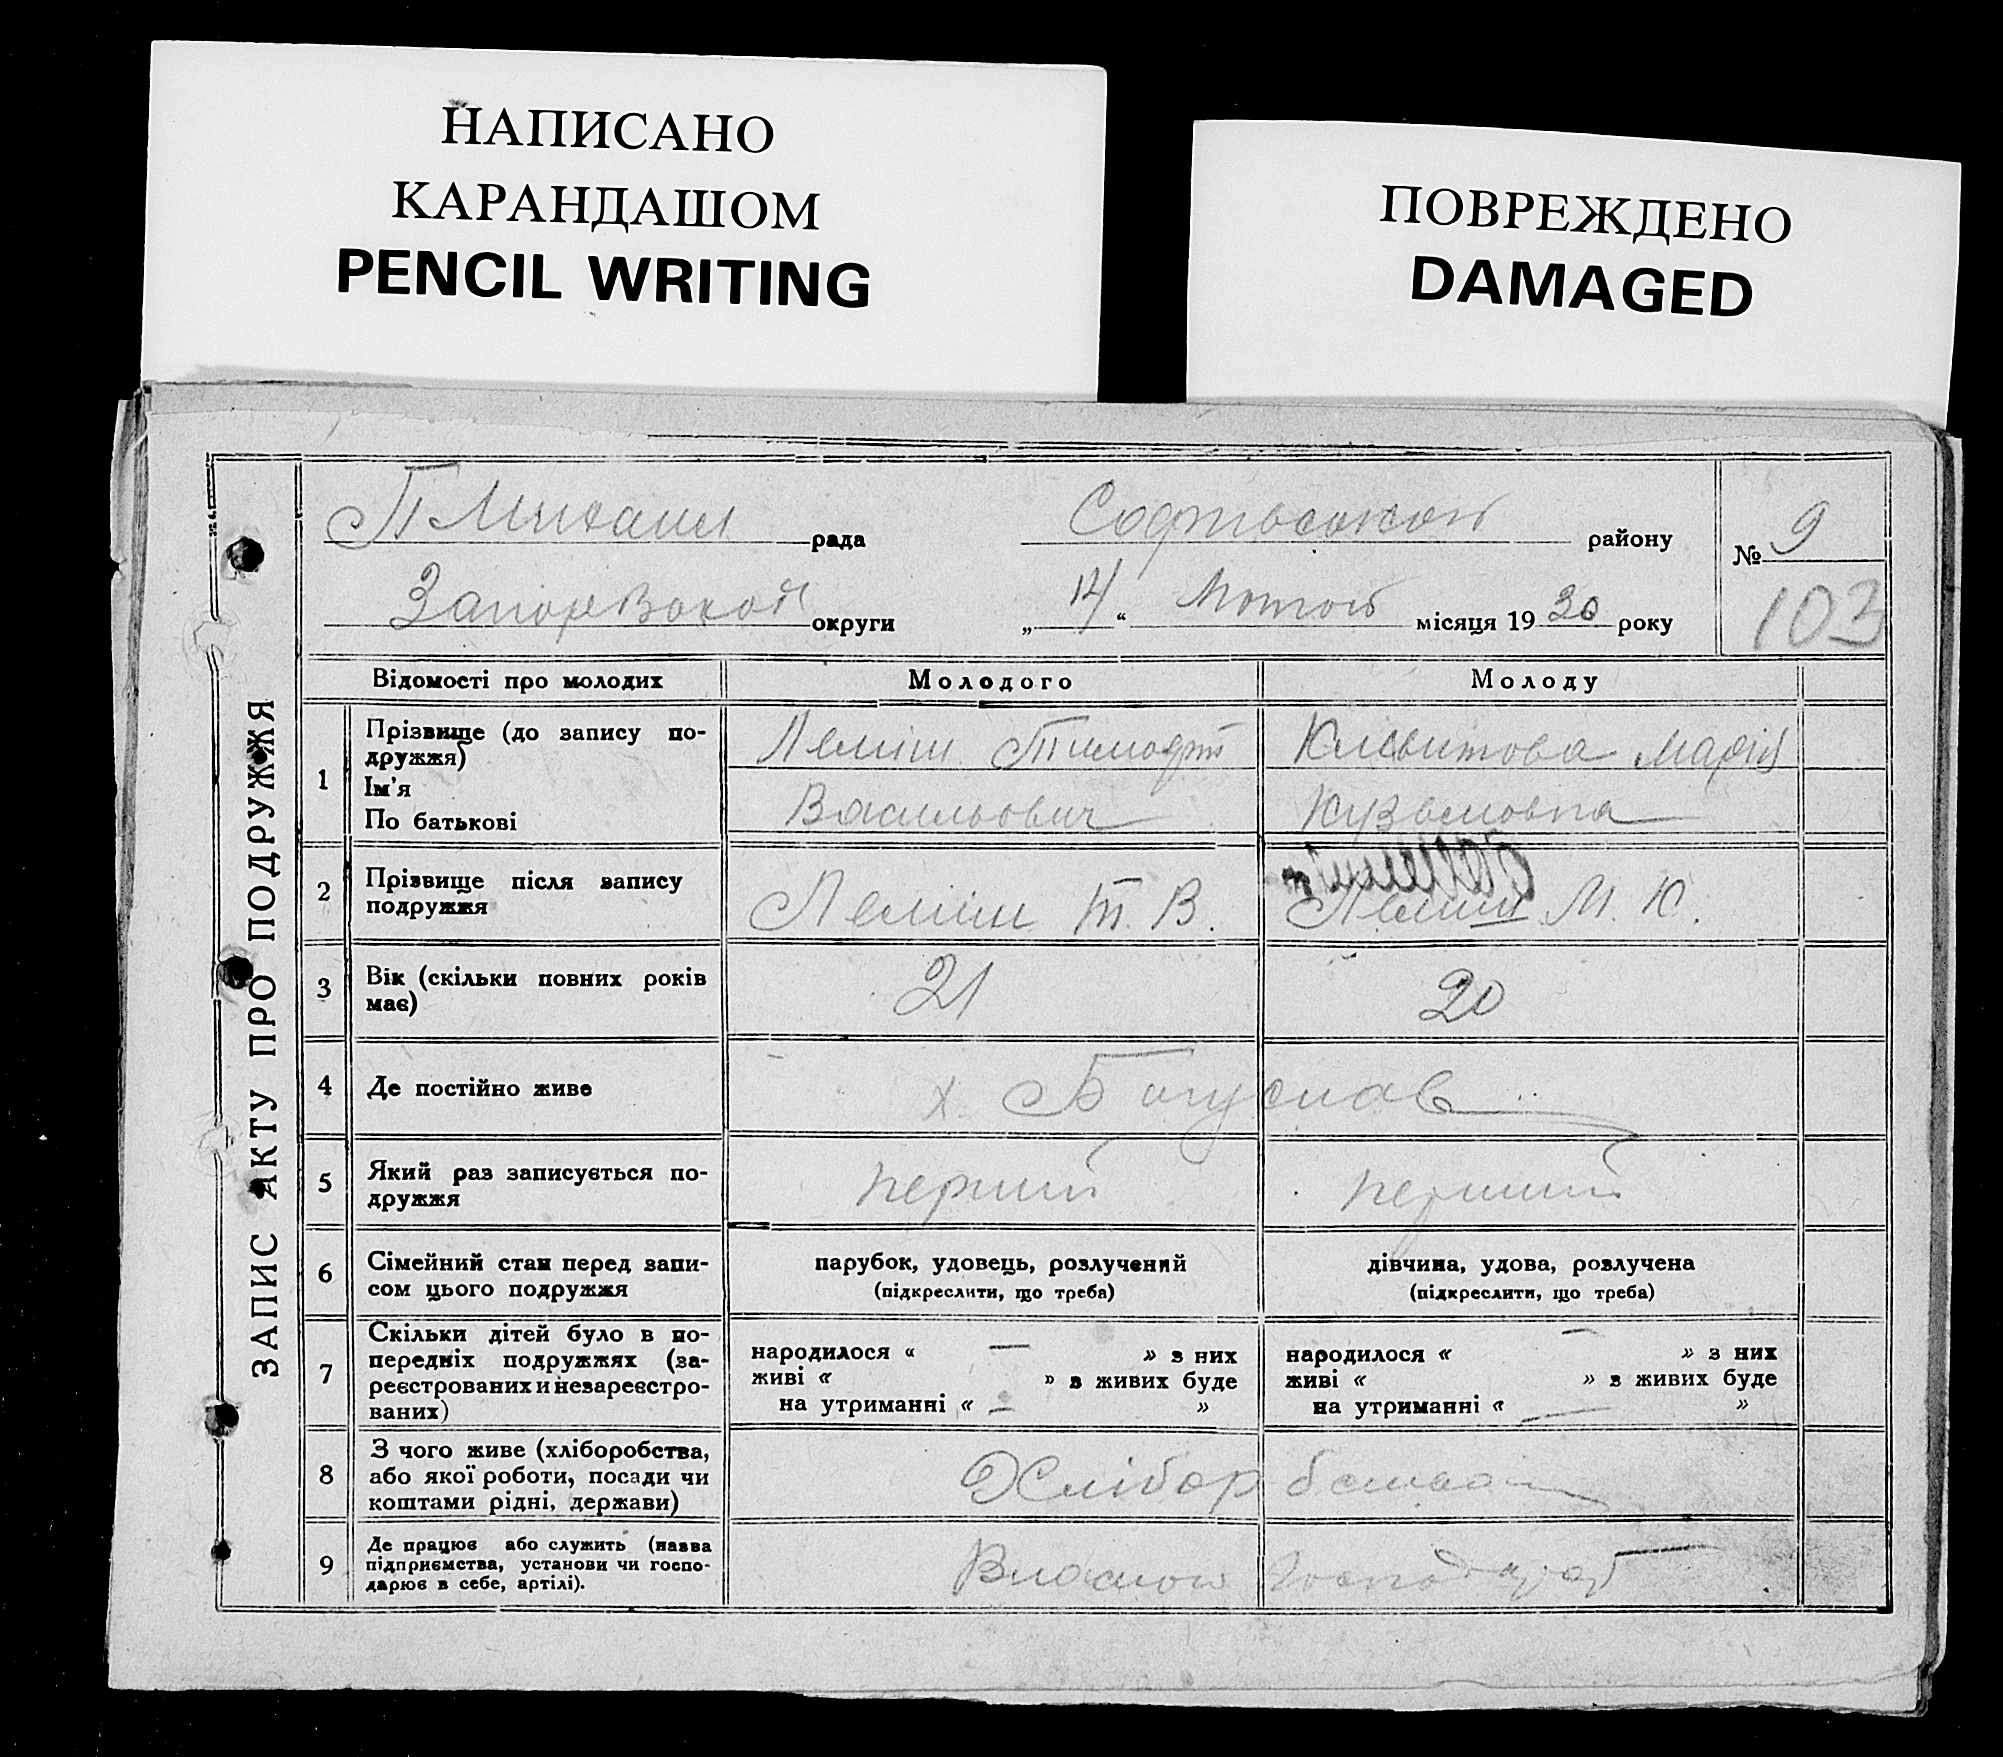 НАПИСАНО
КАРАНДАШОМ
PENCIL WRITING
ПОВРЕЖДЕНО
DAMAGED
ЗАПИС АКТУ ПРО ПОДРУЖЖЯ
рада района району
№ 9
округи „14“ місяця 1930 року
103
Відомості про молодих Молодого Молоду
1 Прізвище (до запису по-
дружжя)
Ім'я
По батькові
Леміш Тимофій
Васильович
Марія
Кузьмовна
2 Прізвище після запису
подружжя
Леміш Т. В.
Леміш М. К.
3 Вік (скільки повних років
має)
21
20
4 Де постійно живе
х. Богуслав
5 Який раз записується по-
дружжя
перший
перший
6 Сімейний стан перед запи-
сом цього подружжя
парубок, удовець, розлучений
(підкреслити, що треба)
дівчина, удова, розлучена
(підкреслити, що треба)
7 Скільки дітей було в по-
передніх подружжях (за-
реєстрованих и незареєстро-
ваних)
народилося « — » з них
живі « » з живих буде
на утриманні « — »
народилося « — » з них
живі « » з живих буде
на утриманні « — »
8 З чого живе (хліборобства,
або якої роботи, посади чи
коштами рідні, держави)
9 Де працює або служить (назва
підприємства, установи чи госпо-
дарює в себе, артілі).